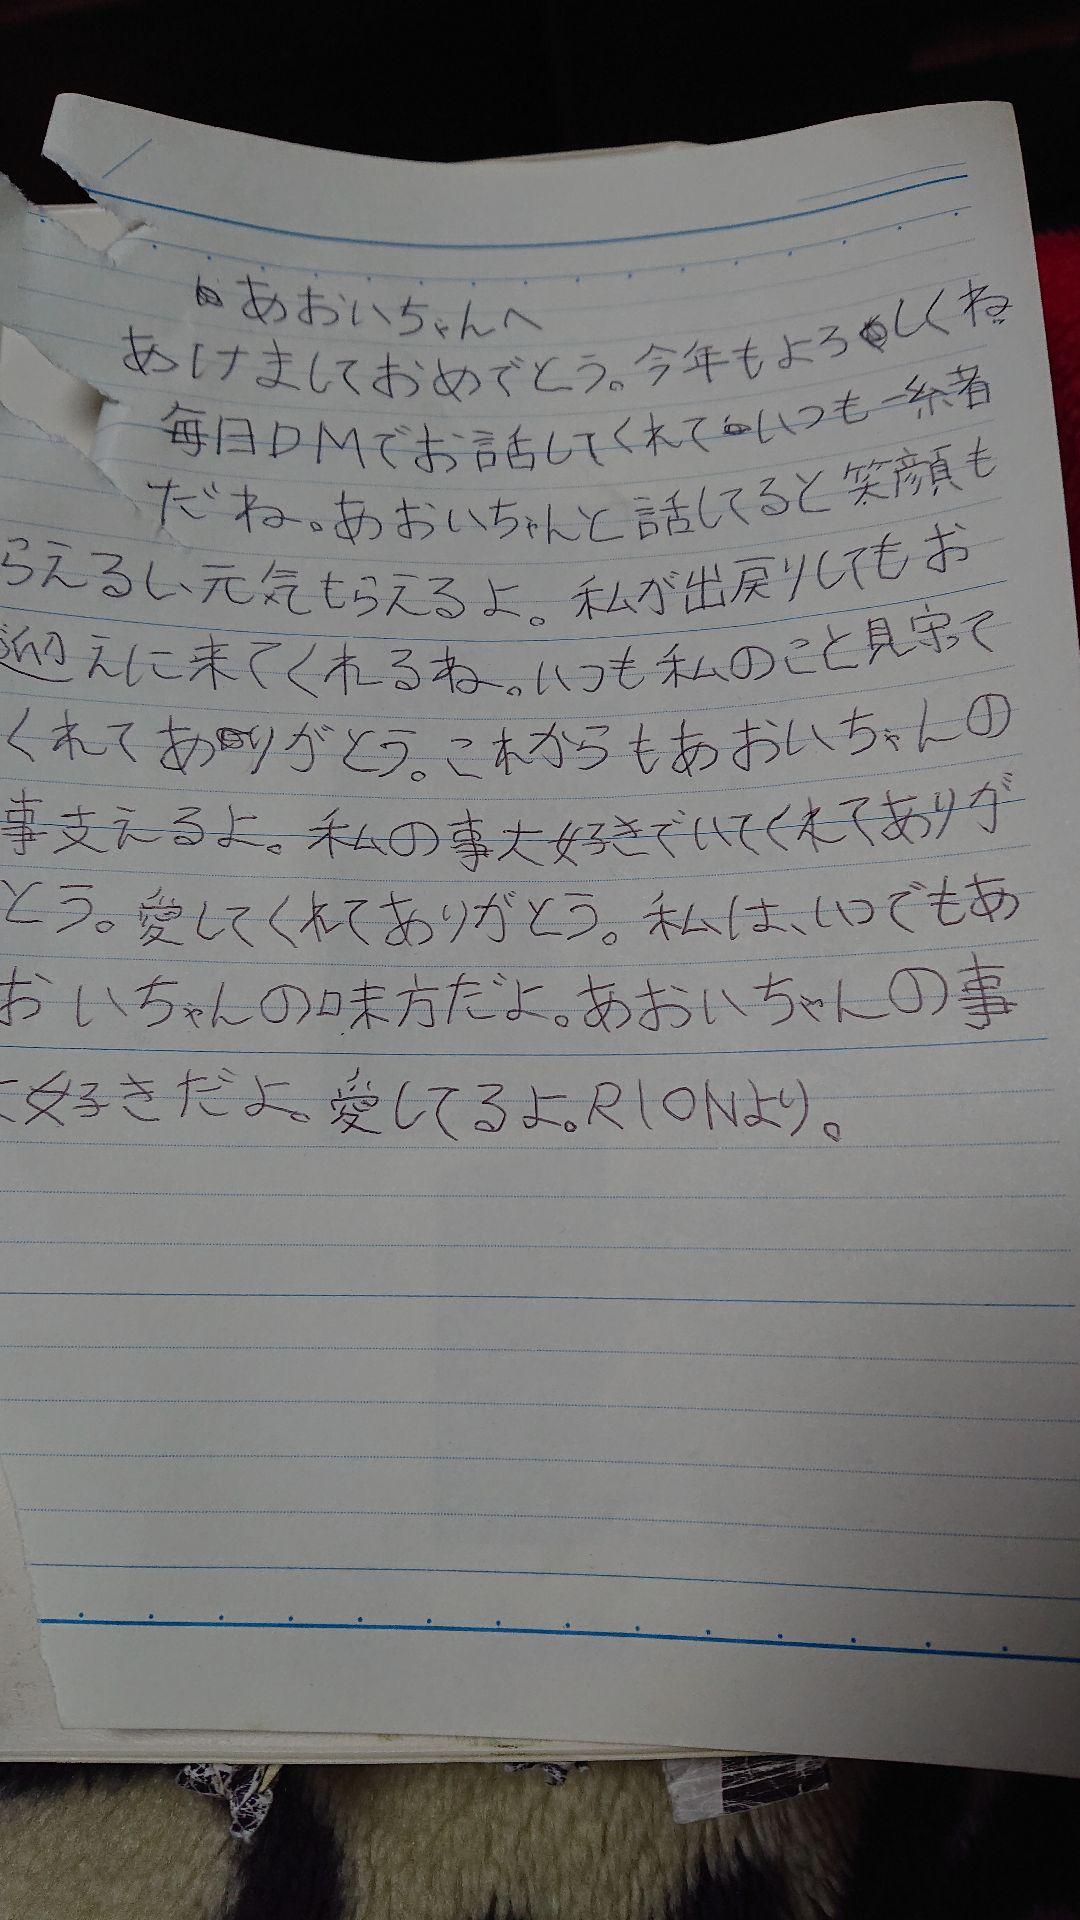 あおいちゃんへ
あけましておめでとう。今年もよろしくね
毎日DMでお話してくれていつも一緒
だね。あおいちゃんと話してると笑顔も
らえるし、元気もらえるよ。私が出戻りしてもお
迎えに来てくれるね。いつも私のこと見守って
くれてありがとう。これからもあおいちゃんの
事支えるよ。私の事大好きでいてくれてありが
とう。愛してくれてありがとう。私は、いつでもあ
おいちゃんの味方だよ。あおいちゃんの事
大好きだよ。愛してるよ。RIONより。